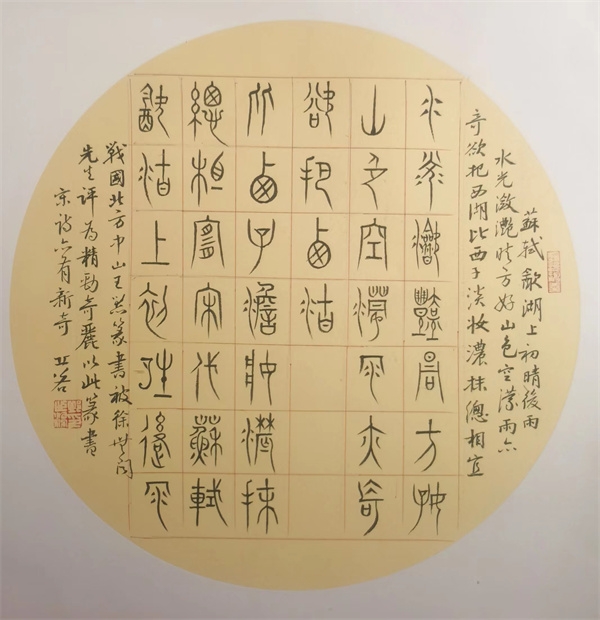 蘇軾飲湖上初晴後雨
水光瀲灩晴方好山色空濛雨亦
奇欲把西湖比西子淡妝濃抹總相宜
水光瀲灩晴方好
山色空濛雨亦奇
欲把西湖
比西子澹妝濃抹
總相宜宋代蘇軾
飲湖上初晴後雨
戰國北方中山王器篆書被徐無聞
先生評為精勁奇麗以此篆書
宋詩亦有新奇